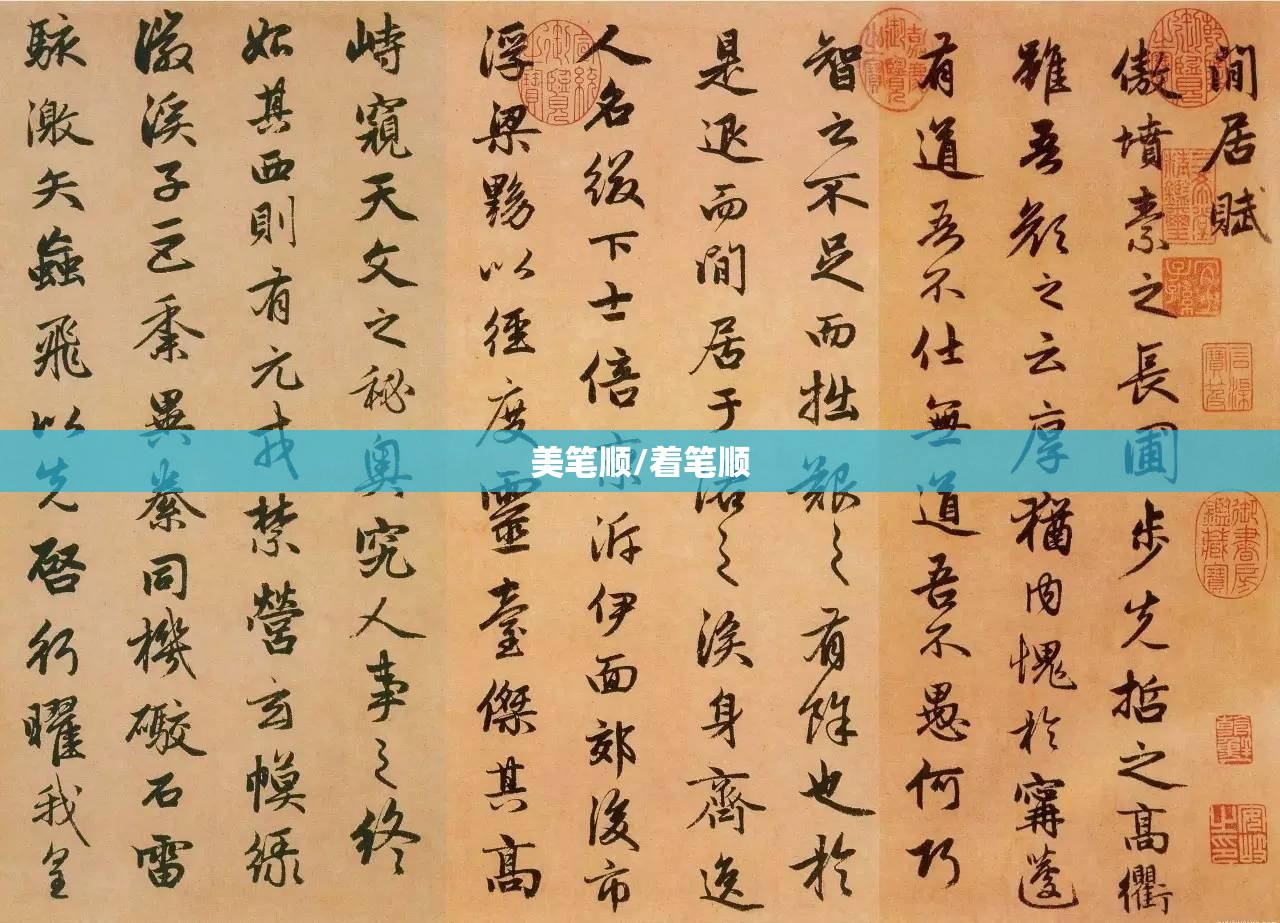 閒居賦
傲墳素之長圃步先哲之高衢
雖吾顏之云厚猶內愧於寗蘧
有道吾不仕無道吾不愚何巧
智之不足而拙艱之有餘也於
是退而閒居于洛之涘身齊逸
人名綴下士倍京泝伊面郊後市
浮梁黝以徑度靈臺傑其高
峙窺天文之秘奧究人事之終
始其西則有元戎禁營玄幙綠
徽溪子巨黍異絭同機礮石雷
駭激矢蝱飛以先啓行曜我皇
美笔顺/着笔顺
御書房鑑藏寶